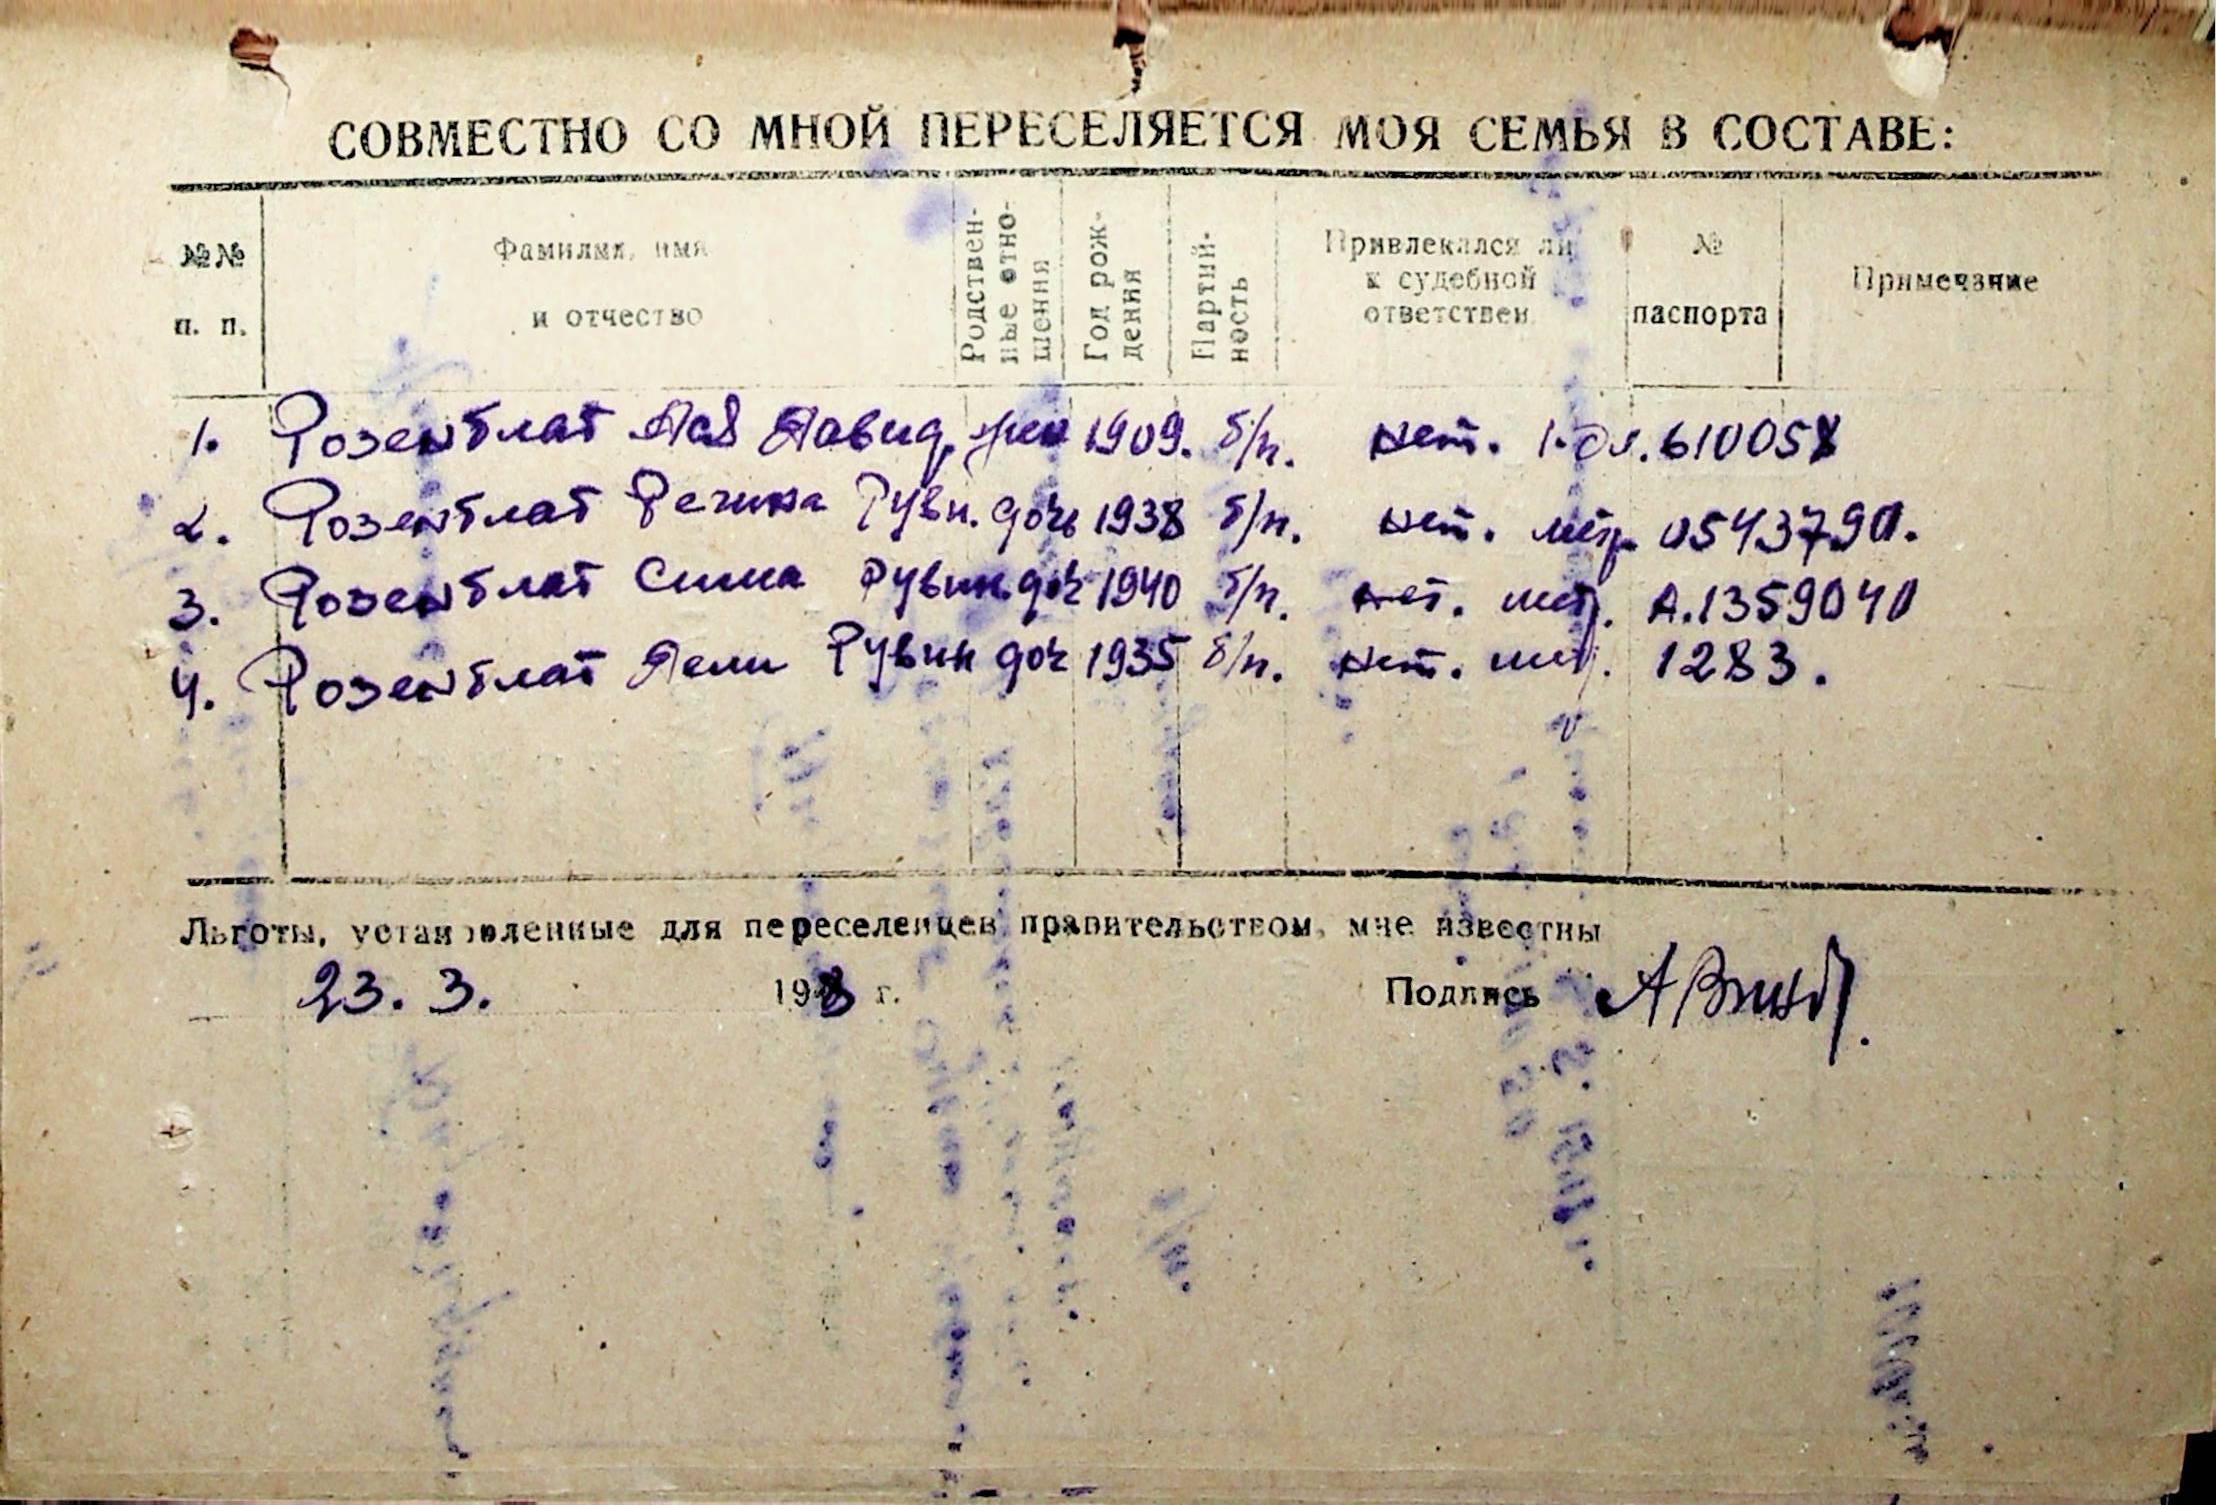 СОВМЕСТНО СО МНОЙ ПЕРЕСЕЛЯЕТСЯ МОЯ СЕМЬЯ В СОСТАВЕ:
№№ п. п. Фамилия, имя и отчество Родствен- ные отно- шения Год рож- дения Партий- ность Привлекался ли к судебной ответствен № паспорта Примечание
1. Розенблат Давид. жен 1909. б/п. нет. 610058
2. Розенблат Регина Рувн. дочь 1938 б/п. нет. метр 0543790.
3. Розенблат Сима Рувин доч 1940 б/п. нет. метр. А.1359040
4. Розенблат Рувин доч 1935 б/п. нет. метр. 1283.
Льготы, установленные для переселенцев правительством, мне известны
23. 3. 1948 г. Подпись